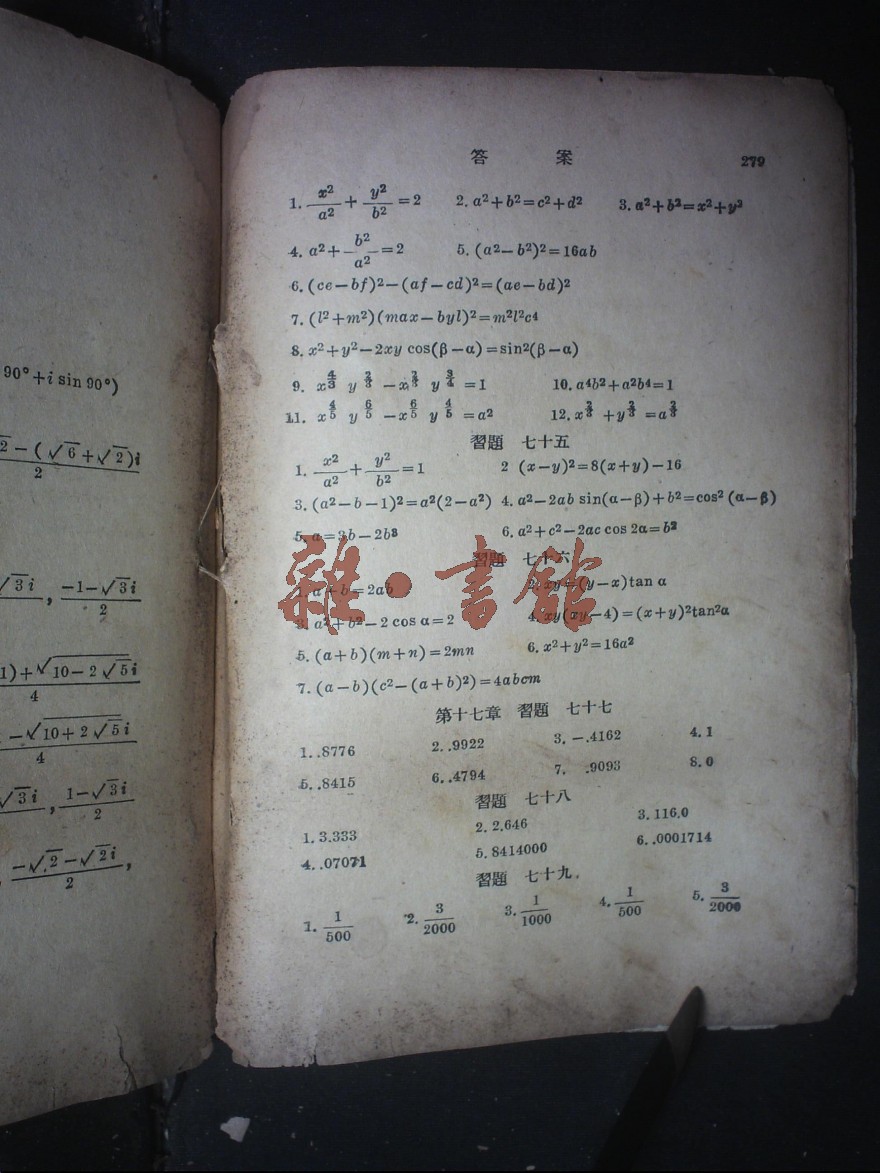 90°+i sin 90°)
2-(√6+√2)i
2
√3i, -1-√3i
2
1)+√10-2√5i
4
-√10+2√5i
4
√3i, 1-√3i
2
-√2-√2i,
2
答 案 279
1. x²/a² + y²/b² =2 2. a²+b²=c²+d² 3. a²+b²=x²+y²
4. a²+ b²/a² =2 5. (a²-b²)²=16ab
6. (ce-bf)²-(af-cd)²=(ae-bd)²
7. (l²+m²)(max-byl)²=m²l²c⁴
8. x²+y²-2xy cos(β-α)=sin²(β-α)
9. =1 10. a⁴b²+a²b⁴=1
11. x^(4/5) y^(6/5) -x^(6/5) y^(4/5) =a² 12. x^(2/3) +y^(2/3) =a^(2/3)
習題 七十五
1. x²/a² + y²/b² =1 2 (x-y)²=8(x+y)-16
3. (a²-b-1)²=a²(2-a²) 4. a²-2ab sin(α-β)+b²=cos²(α-β)
5. a=3b-2b³ 6. a²+c²-2ac cos 2α=b²
習題 七十六
1. a+b=2ab 2. xy=(y-x)tan α
3. a²+b²-2 cos α=2 4. xy(xy-4)=(x+y)²tan²α
5. (a+b)(m+n)=2mn 6. x²+y²=16a²
7. (a-b)(c²-(a+b)²)=4abcm
第十七章 習題 七十七
1. .8776 2. .9922 3. -.4162 4. 1
5. .8415 6. .4794 7. .9093 8. 0
習題 七十八
1. 3.333 2. 2.646 3. 116.0
4. .07071 5. 8414000 6. .0001714
習題 七十九
1. 1/500 2. 3/2000 3. 1/1000 4. 1/500 5. 3/2000
雜·書館